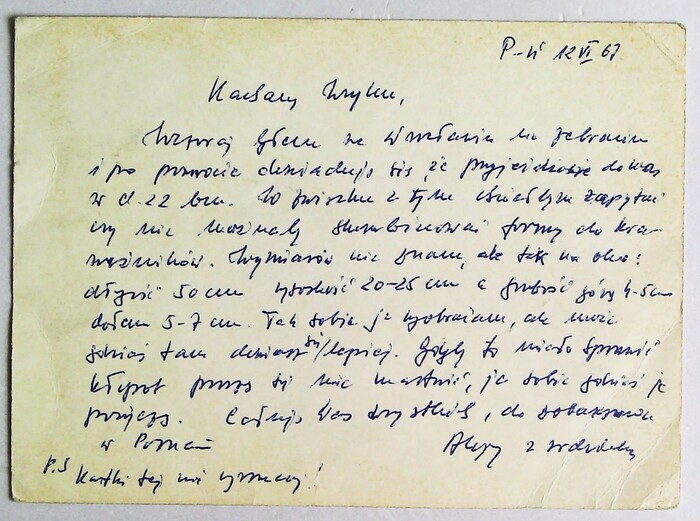 P-ń 12 VI 67
Kochany Zbychu,
Wczoraj byłem we Wrocławiu na zebraniu
i po powrocie dowiaduję się, że przyjeżdżacie do nas
w d. 22 bm. W związku z tym chciałbym zapytać
czy nie można by skombinować formy do kra-
wężników. Wymiarów nie znam, ale tak na oko:
długość 50 cm wysokość 20-25 cm a grubość górą 4-5 cm
dołem 5-7 cm. Tak sobie je wyobrażam, ale może
gdzieś tam dowiesz się/lepiej. Gdyby to miało sprawić
kłopot proszę się nie martwić, ja sobie gdzieś je
pożyczę. Całuję Was wszystkich, do zobaczenia
w Poznaniu
z rodziną
P.S
Kartki tej nie wyrzucaj!